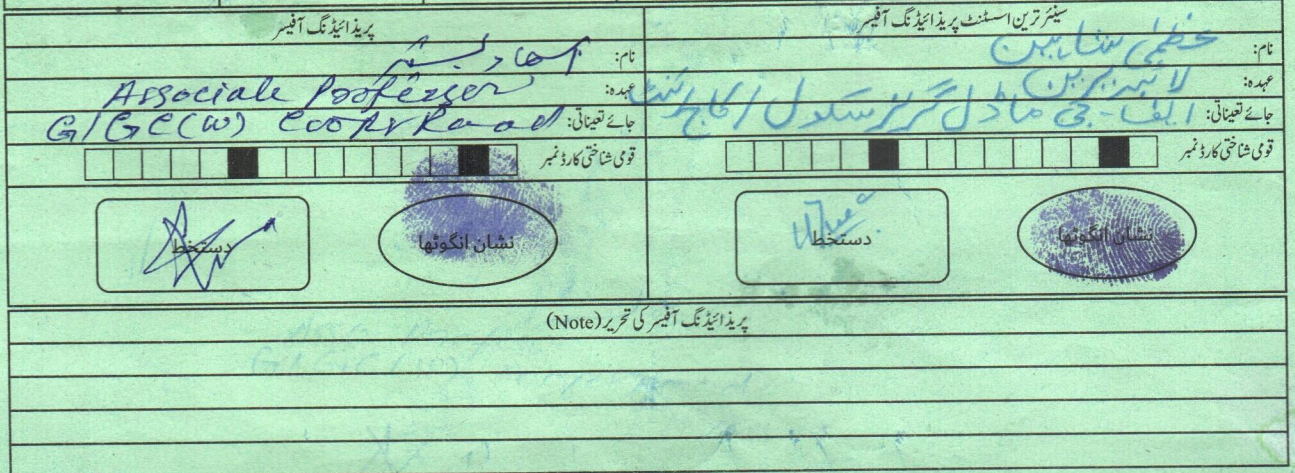 سینئر ترین اسسٹنٹ پریذائیڈنگ آفیسر
نام: عظمیٰ شاہین
عہدہ: لائبریرین
جائے تعیناتی: ایف۔جی ماڈل گرلز سکول / کالج کینٹ
قومی شناختی کارڈ نمبر
نشان انگوٹھا
دستخط
پریذائیڈنگ آفیسر
نام:
عہدہ: Associate Professor
جائے تعیناتی: G/GC(W) Coopr Road
قومی شناختی کارڈ نمبر
نشان انگوٹھا
دستخط
پریذائیڈنگ آفیسر کی تحریر (Note)